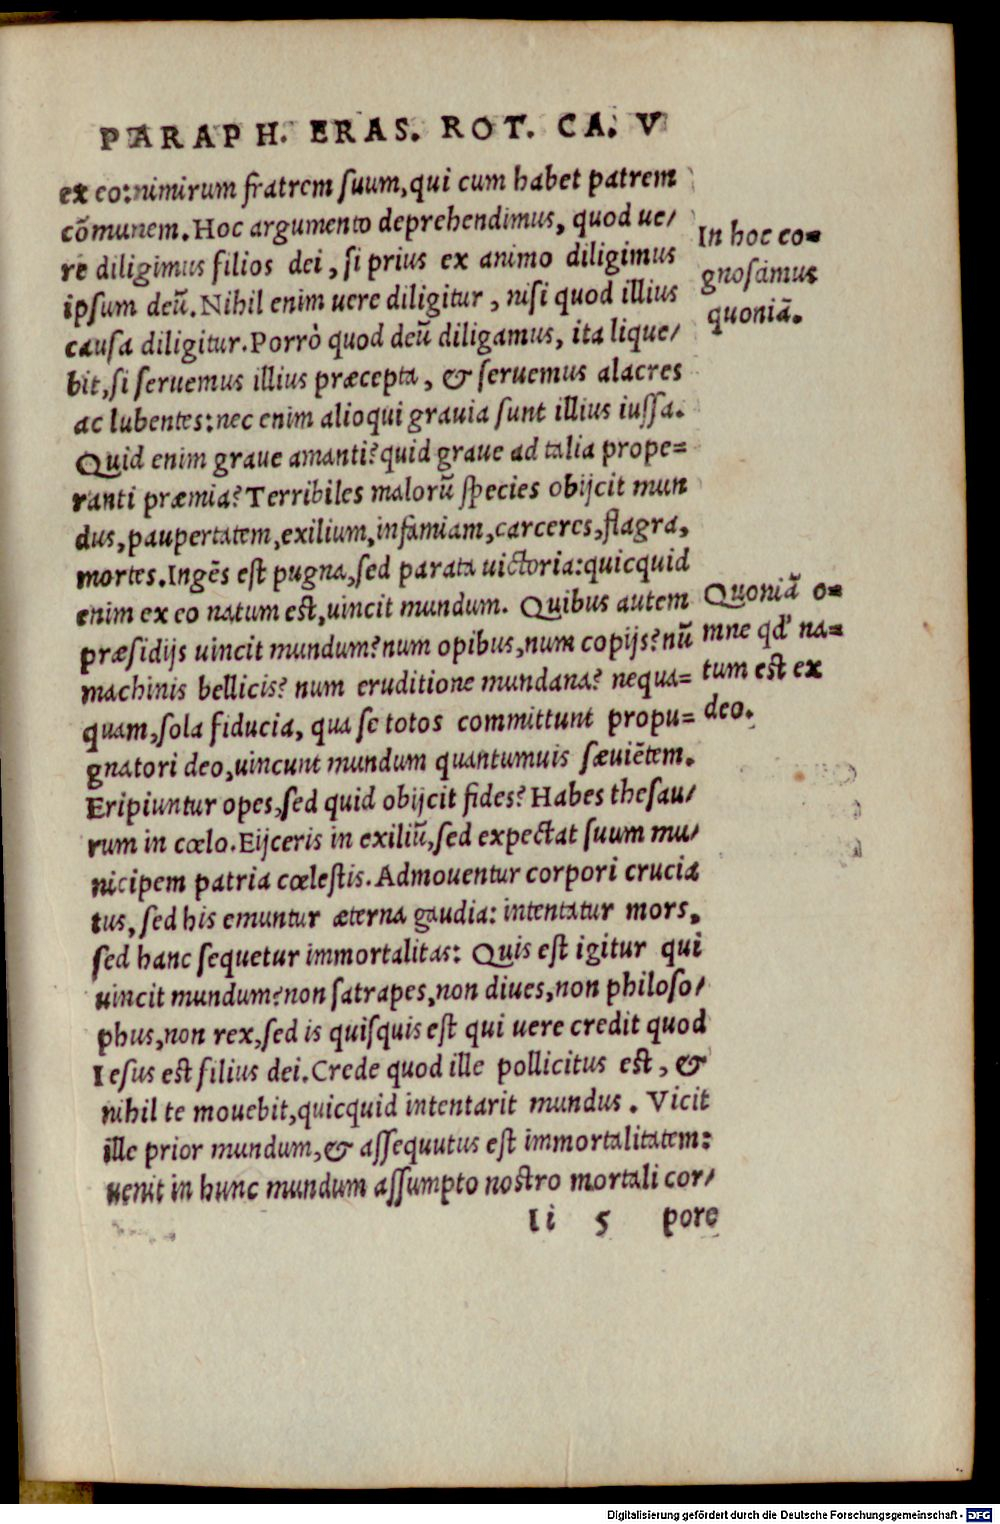 PARAPH. ERAS. ROT. CA. V
ex eo: nimirum fratrem suum, qui cum habet patrem
cõmunem. Hoc argumento deprehendimus, quod ue/
re diligimus filios dei, si prius ex animo diligimus
ipsum deũ. Nihil enim uere diligitur, nisi quod illius
causa diligitur. Porrò quod deũ diligamus, ita lique/
bit, si seruemus illius præcepta, & seruemus alacres
ac lubentes: nec enim alioqui grauia sunt illius iussa.
Quid enim graue amanti? quid graue ad talia prope=
ranti præmia? Terribiles malorũ species obijcit mun
dus, paupertatem, exilium, infamiam, carceres, flagra,
mortes. Ingẽs est pugna, sed parata uictoria: quicquid
enim ex eo natum est, uincit mundum. Quibus autem
præsidijs uincit mundum? num opibus, num copijs? nũ
machinis bellicis? num eruditione mundana? nequa=
quam, sola fiducia, qua se totos committunt propu=
gnatori deo, uincunt mundum quantumuis sæuiẽtem.
Eripiuntur opes, sed quid obijcit fides? Habes thesau/
rum in cœlo. Eijceris in exiliũ, sed expectat suum mu/
nicipem patria cœlestis. Admouentur corpori crucia
tus, sed his emuntur æterna gaudia: intentatur mors,
sed hanc sequetur immortalitas: Quis est igitur qui
uincit mundum? non satrapes, non diues, non philoso/
phus, non rex, sed is quisquis est qui uere credit quod
Iesus est filius dei. Crede quod ille pollicitus est, &
nihil te mouebit, quicquid intentarit mundus. Vicit
ille prior mundum, & assequutus est immortalitatem:
uenit in hunc mundum assumpto nostro mortali cor/
Ii 5 pore
In hoc co=
gnoscimus
quoniã.
Quoniã o=
mne qd' na=
tum est ex
deo.
Digitalisierung gefördert durch die Deutsche Forschungsgemeinschaft - DFG